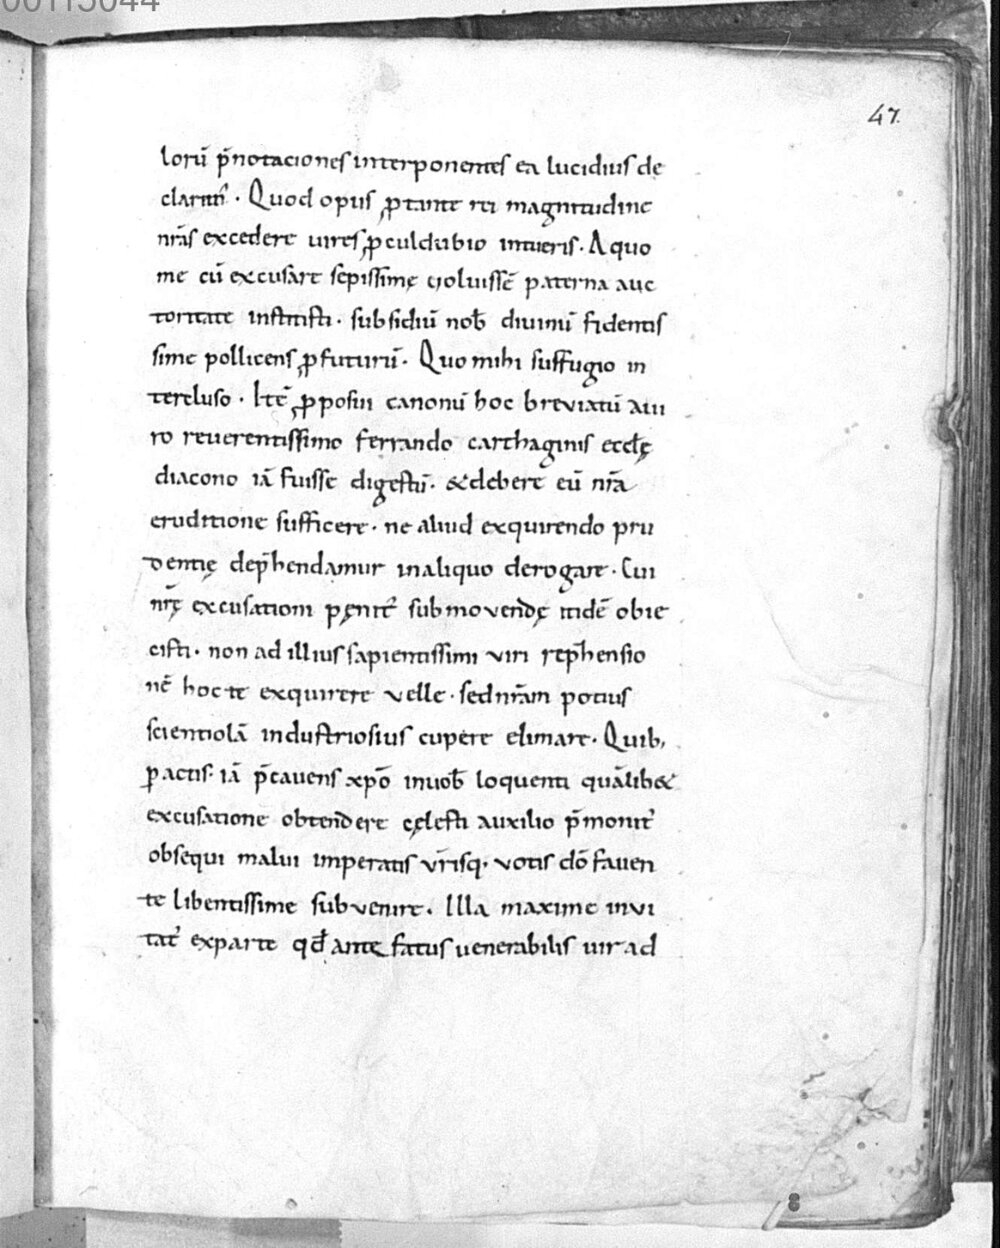 00115044
47.
lorū p̄notacionesinterponentes ea lucidius de
clarar̄ . Quod opus ꝓ tante rei magnitudine
nr̄as excedere uires ꝓculdubio intueris . A quo
me cū excusare sepissimę uoluissē paterna auc
toritate institisti . subsidiū nob̄ diuinū fidentis
sime pollicens ꝓfuturū . Quo mihi suffugio in
tercluso . Itē ꝓposui canonū hoc breviatū a ui
ro reuerentissimo ferrando carthaginis eccl̄ę
diacono iā fuisse digestū . &debere eū nr̄a
eruditione sufficere . ne aliud exquirendo pru
dentię dep̄hendamur inaliquo derogare . Cui
nr̄ę excusationi pęnit᷒ submovendę itidē obie
cisti . non ad illius sapientissimi viri rep̄hensio
nē hoc te exquirere velle . sednr̄am potius
scientiolā industriosius cupere elimare . Quib,
ꝑactis . iā p̄cavens xp̄o inuob̄ loquenti quālib&
excusatione obtendere cęlesti auxilio p̄monit᷒
obsequi malui imperatis vr̄isq. votis dō faven
te libentissime subvenire . Illa maxime invi
tat᷒ exparte qd̄ antefatus uenerabilis uir ad